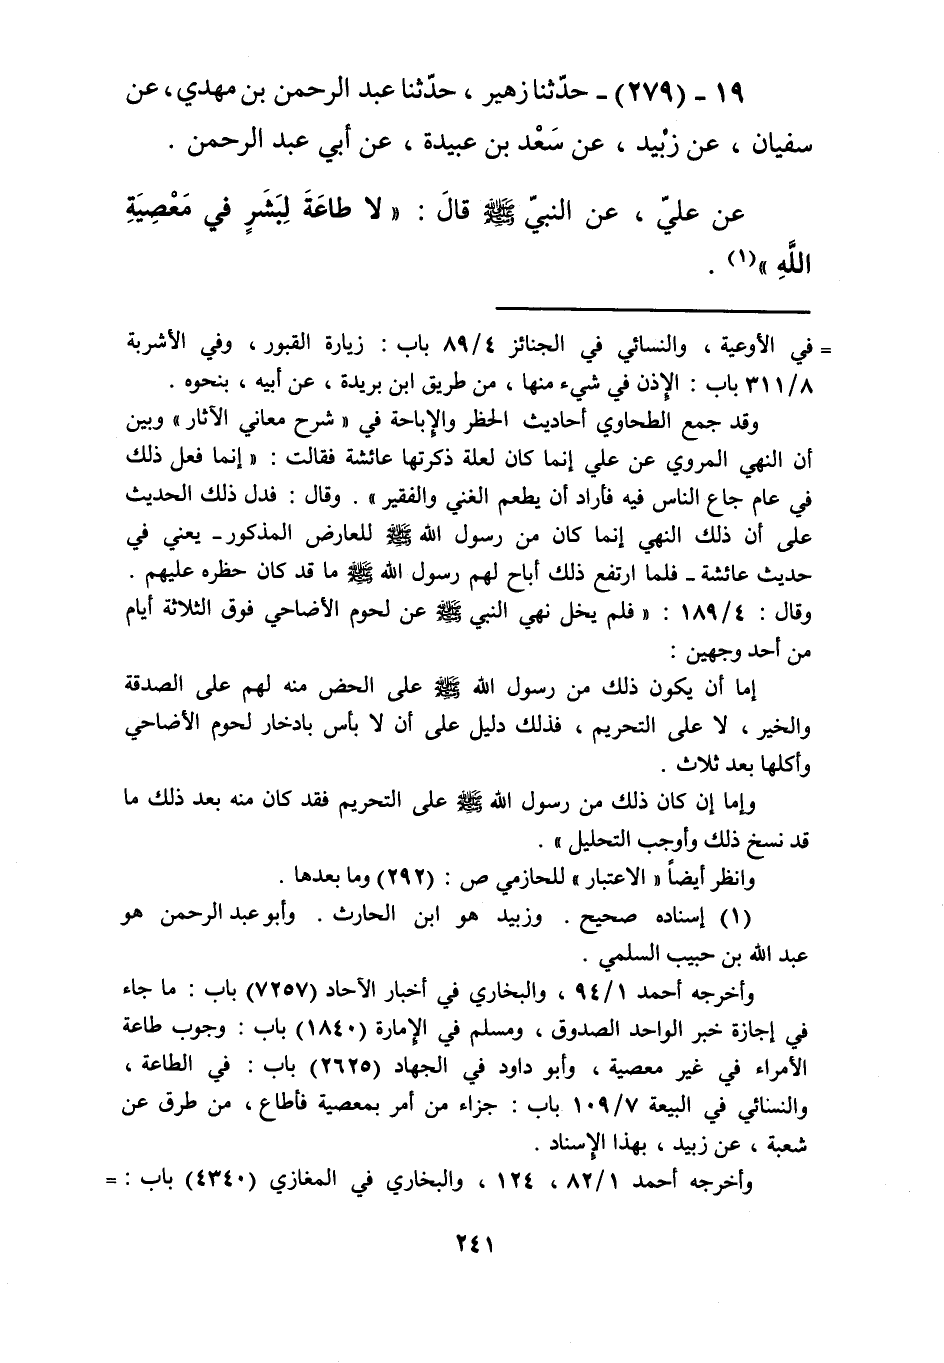 ١٩ ـ (٢٧٩) ـ حدّثنا زهير ، حدّثنا عبد الرحمن بن مهدي، عن
سفيان ، عن زبْيد ، عن سَعْد بن عبيدة ، عن أبي عبد الرحمن .
عن عليّ ، عن النبيّ ﷺ قالَ : « لا طاعَةَ لِبَشَرٍ في مَعْصِيَةِ
اللَّهِ »(١) .
= في الأوعية ، والنسائي في الجنائز ٨٩/٤ باب : زيارة القبور ، وفي الأشربة
٣١١/٨ باب : الإذن في شيء منها ، من طريق ابن بريدة ، عن أبيه ، بنحوه .
وقد جمع الطحاوي أحاديث الحظر والإباحة في « شرح معاني الآثار » وبين
أن النهي المروي عن علي إنما كان لعلة ذكرتها عائشة فقالت : « إنما فعل ذلك
في عام جاع الناس فيه فأراد أن يطعم الغني والفقير » . وقال : فدل ذلك الحديث
على أن ذلك النهي إنما كان من رسول الله ﷺ للعارض المذكور ـ يعني في
حديث عائشة ـ فلما ارتفع ذلك أباح لهم رسول الله ﷺ ما قد كان حظره عليهم .
وقال : ١٨٩/٤ : « فلم يخل نهي النبي ﷺ عن لحوم الأضاحي فوق الثلاثة أيام
من أحد وجهين :
إما أن يكون ذلك من رسول الله ﷺ على الحض منه لهم على الصدقة
والخير ، لا على التحريم ، فذلك دليل على أن لا بأس بادخار لحوم الأضاحي
وأكلها بعد ثلاث .
وإما إن كان ذلك من رسول الله ﷺ على التحريم فقد كان منه بعد ذلك ما
قد نسخ ذلك وأوجب التحليل » .
وانظر أيضاً « الاعتبار » للحازمي ص : (٢٩٢) وما بعدها .
(١) إسناده صحيح . وزبيد هو ابن الحارث . وأبو عبد الرحمن هو
عبد الله بن حبيب السلمي .
وأخرجه أحمد ٩٤/١ ، والبخاري في أخبار الآحاد (٧٢٥٧) باب : ما جاء
في إجازة خبر الواحد الصدوق ، ومسلم في الإمارة (١٨٤٠) باب : وجوب طاعة
الأمراء في غير معصية ، وأبو داود في الجهاد (٢٦٢٥) باب : في الطاعة ،
والنسائي في البيعة ١٠٩/٧ باب : جزاء من أمر بمعصية فأطاع ، من طرق عن
شعبة ، عن زبيد ، بهذا الإسناد .
وأخرجه أحمد ٨٢/١ ، ١٢٤ ، والبخاري في المغازي (٤٣٤٠) باب : =
٢٤١